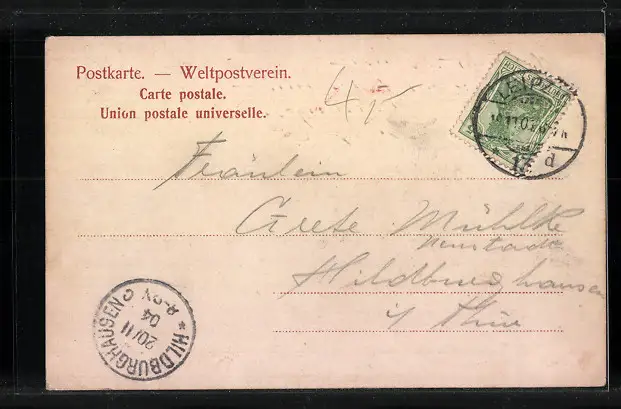 Postkarte. — Weltpostverein.
Carte postale.
Union postale universelle.
4,-
LEIPZIG
13 d
Fräulein
Grete Mühlke
Neustadt
Hildburghausen
i/ Thür
* HILDBURGHAUSEN
20/11
04